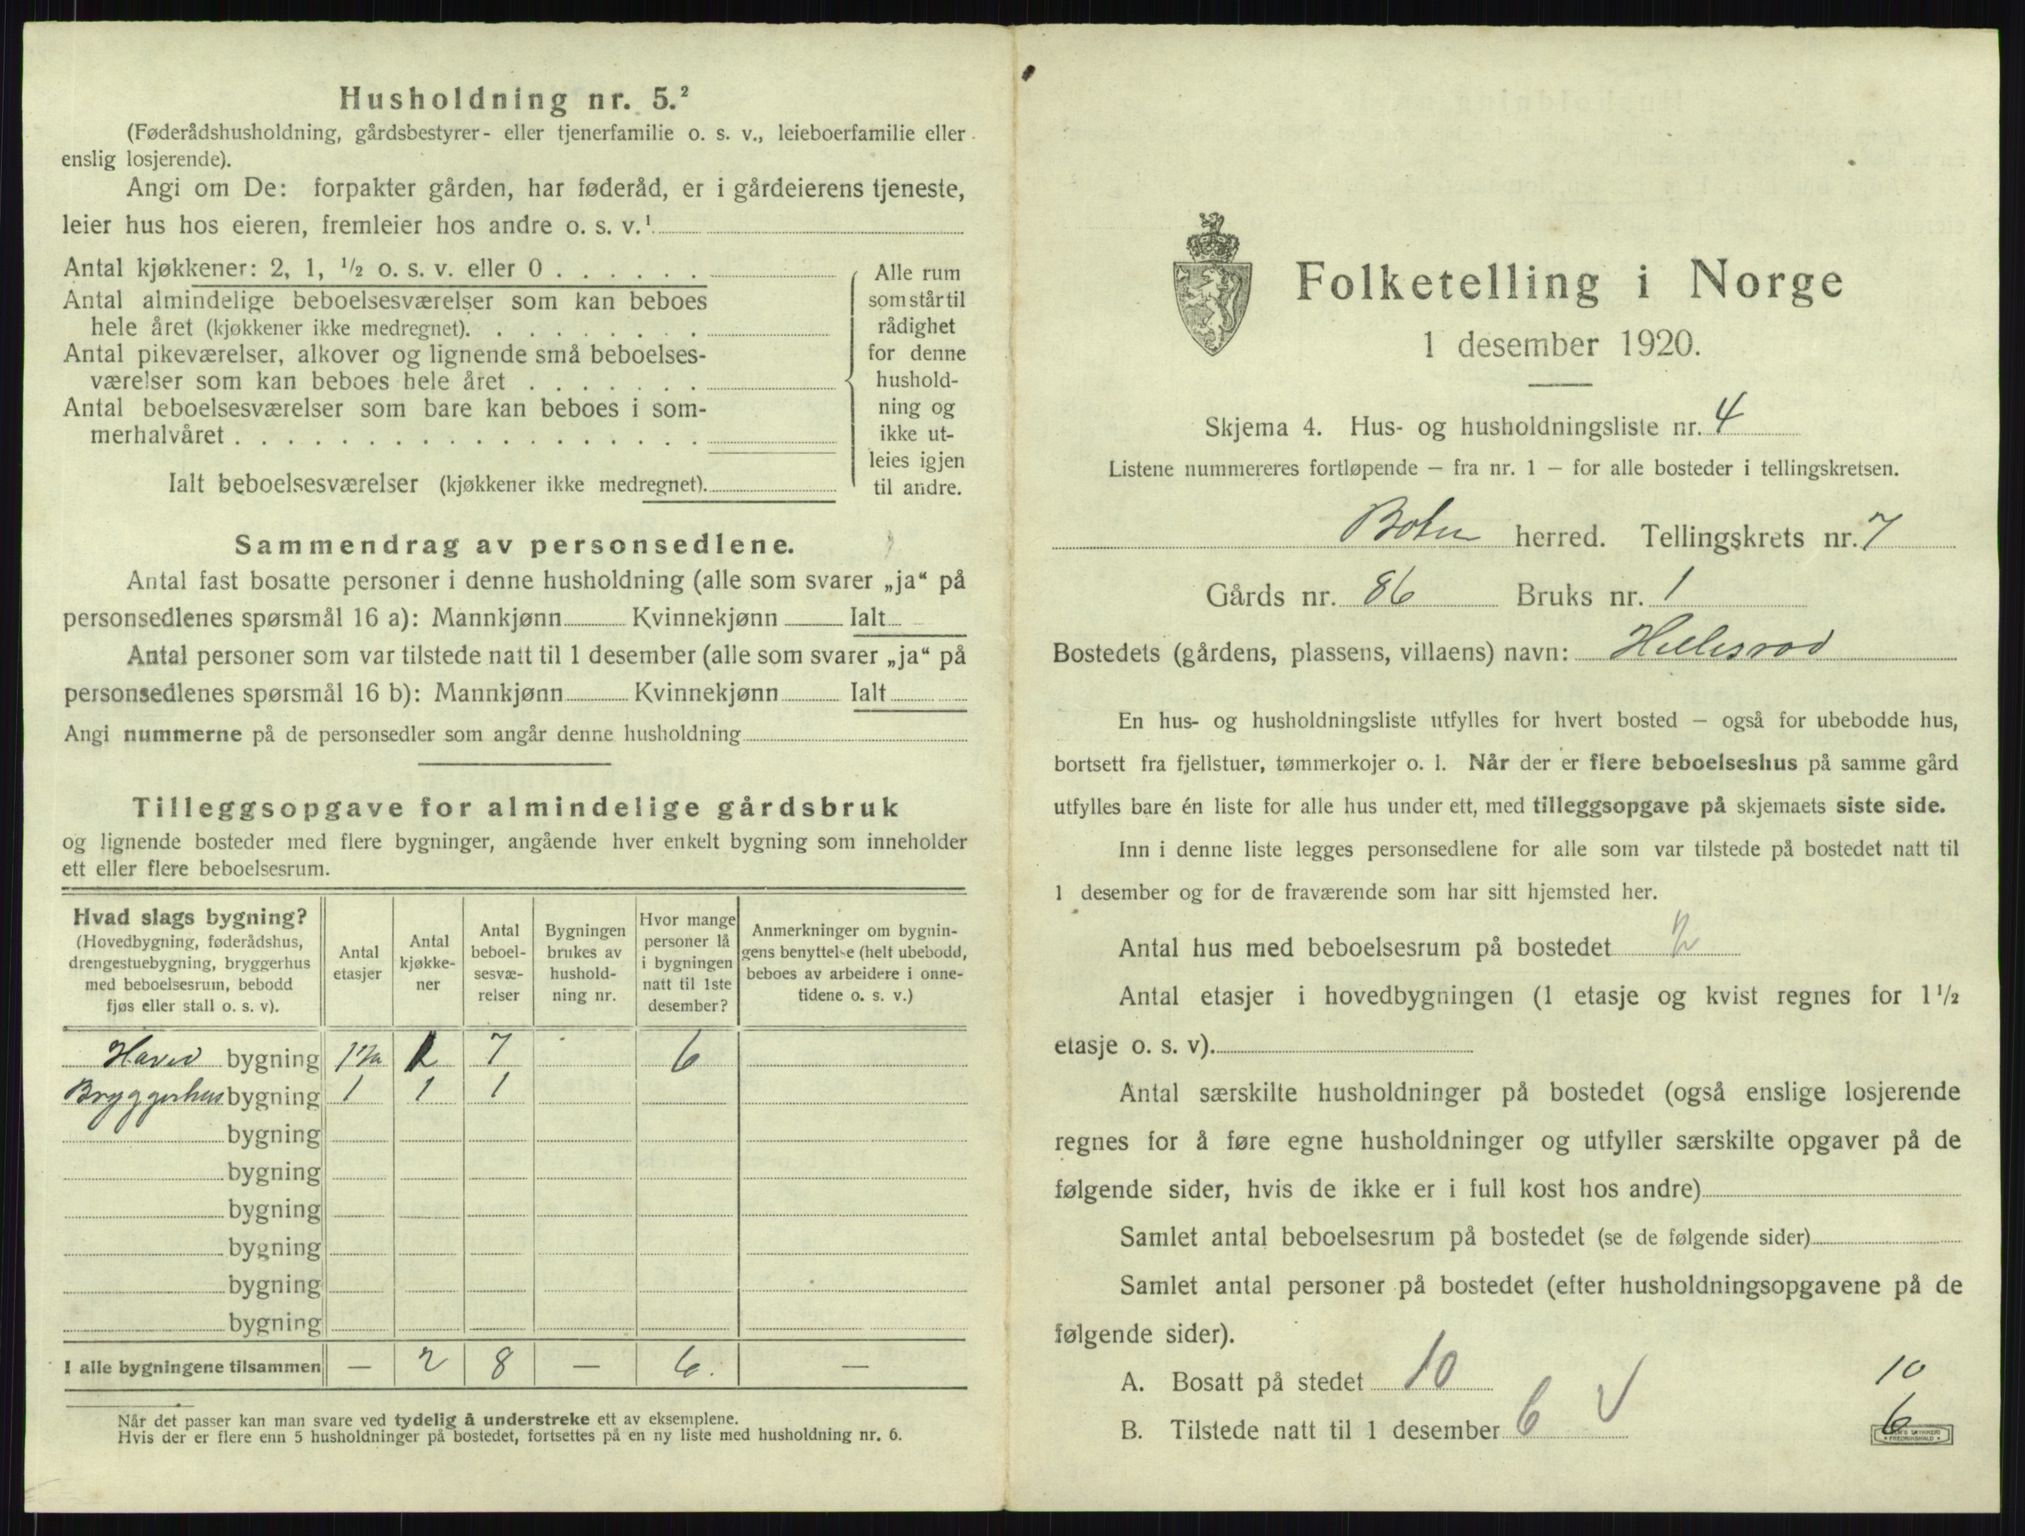 Husholdning nr. 5.²
(Føderådshusholdning, gårdsbestyrer- eller tjenerfamilie o. s. v., leieboerfamilie eller
enslig losjerende).
Angi om De: forpakter gården, har føderåd, er i gårdeierens tjeneste,
leier hus hos eieren, fremleier hos andre o. s. v.¹
Antal kjøkkener: 2, 1, ½ o. s. v. eller 0 . . . . . .
Antal almindelige beboelsesværelser som kan beboes
hele året (kjøkkener ikke medregnet). . . . . . . . .
Antal pikeværelser, alkover og lignende små beboelses-
værelser som kan beboes hele året . . . . . . .
Antal beboelsesværelser som bare kan beboes i som-
merhalvåret . . . . . . . . . . . . . . . . . .
Ialt beboelsesværelser (kjøkkener ikke medregnet).
Alle rum
som står til
rådighet
for denne
hushold-
ning og
ikke ut-
leies igjen
til andre.
Sammendrag av personsedlene.
Antal fast bosatte personer i denne husholdning (alle som svarer „ja“ på
personsedlenes spørsmål 16 a): Mannkjønn Kvinnekjønn Ialt
Antal personer som var tilstede natt til 1 desember (alle som svarer „ja“ på
personsedlenes spørsmål 16 b): Mannkjønn Kvinnekjønn Ialt
Angi nummerne på de personsedler som angår denne husholdning
Tilleggsopgave for almindelige gårdsbruk
og lignende bosteder med flere bygninger, angående hver enkelt bygning som inneholder
ett eller flere beboelsesrum.
Hvad slags bygning?
(Hovedbygning, føderådshus,
drengestuebygning, bryggerhus
med beboelsesrum, bebodd
fjøs eller stall o. s. v).
Antal
etasjer
Antal
kjøkke-
ner
Antal
beboel-
sesvæ-
relser
Bygningen
brukes av
hushold-
ning nr.
Hvor mange
personer lå
i bygningen
natt til 1ste
desember?
Anmerkninger om bygnin-
gens benyttelse (helt ubebodd,
beboes av arbeidere i onne-
tidene o. s. v.)
bygning 1½ 7 6
Bryggerhus bygning 1 1 1
bygning
bygning
bygning
bygning
bygning
bygning
I alle bygningene tilsammen — 2 8 — 6. —
Når det passer kan man svare ved tydelig å understreke ett av eksemplene.
Hvis der er flere enn 5 husholdninger på bostedet, fortsettes på en ny liste med husholdning nr. 6.
Folketelling i Norge
1 desember 1920.
Skjema 4. Hus- og husholdningsliste nr. 4
Listene nummereres fortløpende — fra nr. 1 — for alle bosteder i tellingskretsen.
herred. Tellingskrets nr. 7
Gårds nr. 86 Bruks nr. 1
Bostedets (gårdens, plassens, villaens) navn: Hillesrød
En hus- og husholdningsliste utfylles for hvert bosted — også for ubebodde hus,
bortsett fra fjellstuer, tømmerkojer o. l. Når der er flere beboelseshus på samme gård
utfylles bare én liste for alle hus under ett, med tilleggsopgave på skjemaets siste side.
Inn i denne liste legges personsedlene for alle som var tilstede på bostedet natt til
1 desember og for de fraværende som har sitt hjemsted her.
Antal hus med beboelsesrum på bostedet 2
Antal etasjer i hovedbygningen (1 etasje og kvist regnes for 1½
etasje o. s. v).
Antal særskilte husholdninger på bostedet (også enslige losjerende
regnes for å føre egne husholdninger og utfyller særskilte opgaver på de
følgende sider, hvis de ikke er i full kost hos andre)
Samlet antal beboelsesrum på bostedet (se de følgende sider)
Samlet antal personer på bostedet (efter husholdningsopgavene på de
følgende sider).
A. Bosatt på stedet 10 10
B. Tilstede natt til 1 desember 6 6